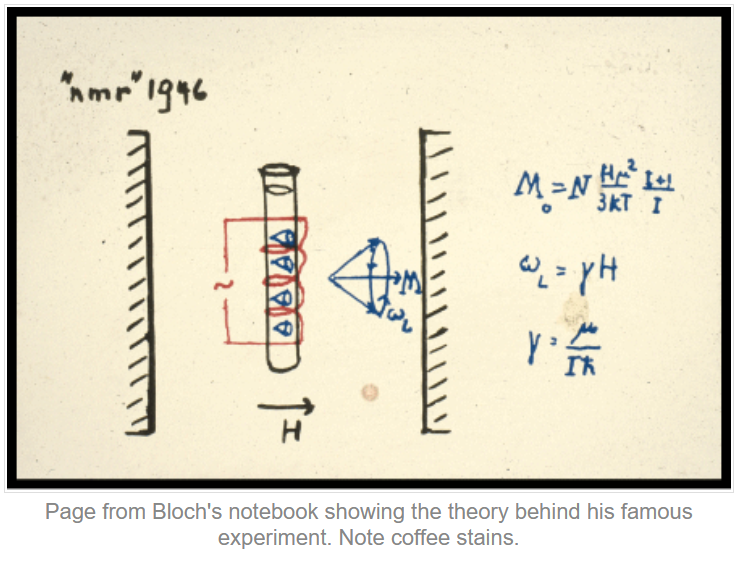 "nmr" 1946
M₀ = N Hμ²/3kT I+1/I
ω_L = γH
γ = μ/Iħ
~
M
ω_L
H
Page from Bloch's notebook showing the theory behind his famous
experiment. Note coffee stains.